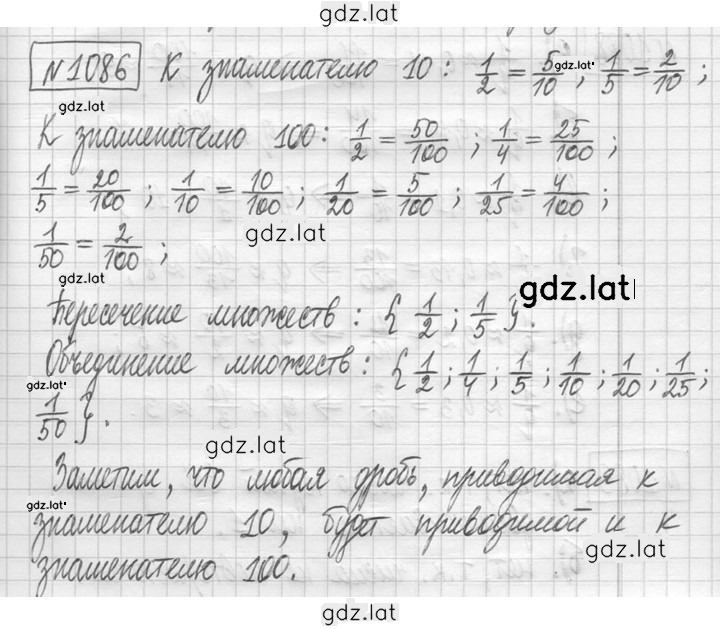 gdz.lat
№1086 К знаменателю 10: 1/2 = 5/10; 1/5 = 2/10;
gdz.lat
gdz.lat
К знаменателю 100: 1/2 = 50/100; 1/4 = 25/100;
1/5 = 20/100; 1/10 = 10/100; 1/20 = 5/100; 1/25 = 4/100;
gdz.lat
1/50 = 2/100;
gdz.lat
gdz.lat
Пересечение множеств: { 1/2; 1/5 }.
Объединение множеств: { 1/2; 1/4; 1/5; 1/10; 1/20; 1/25;
gdz.lat
1/50 }.
gdz.lat
Заметим, что любая дробь, приводимая к
gdz.lat
знаменателю 10, будет приводимой и к
gdz.lat
знаменателю 100.
gdz.lat